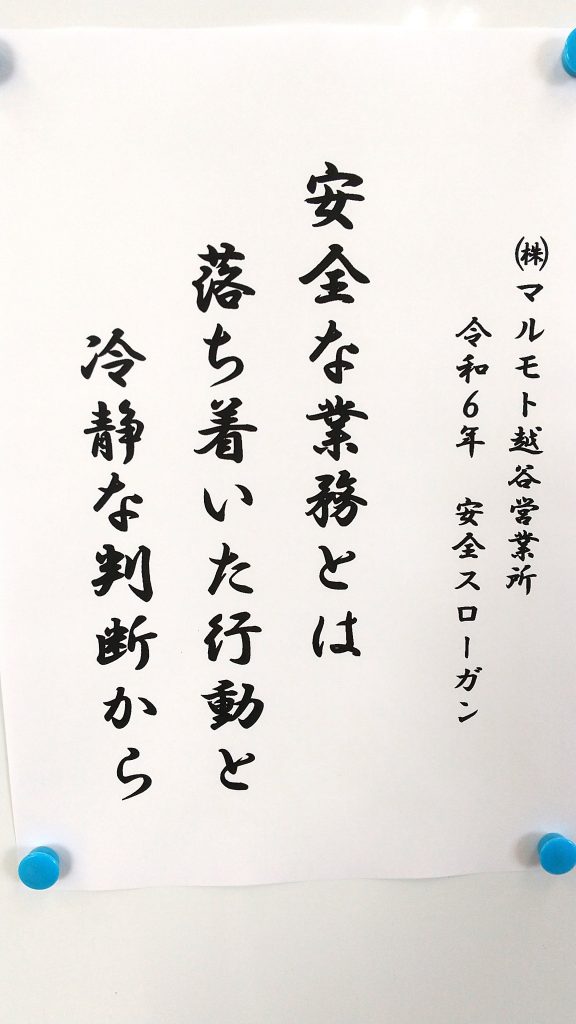 ㈱マルモト越谷営業所
令和6年　安全スローガン
安全な業務とは
落ち着いた行動と
冷静な判断から